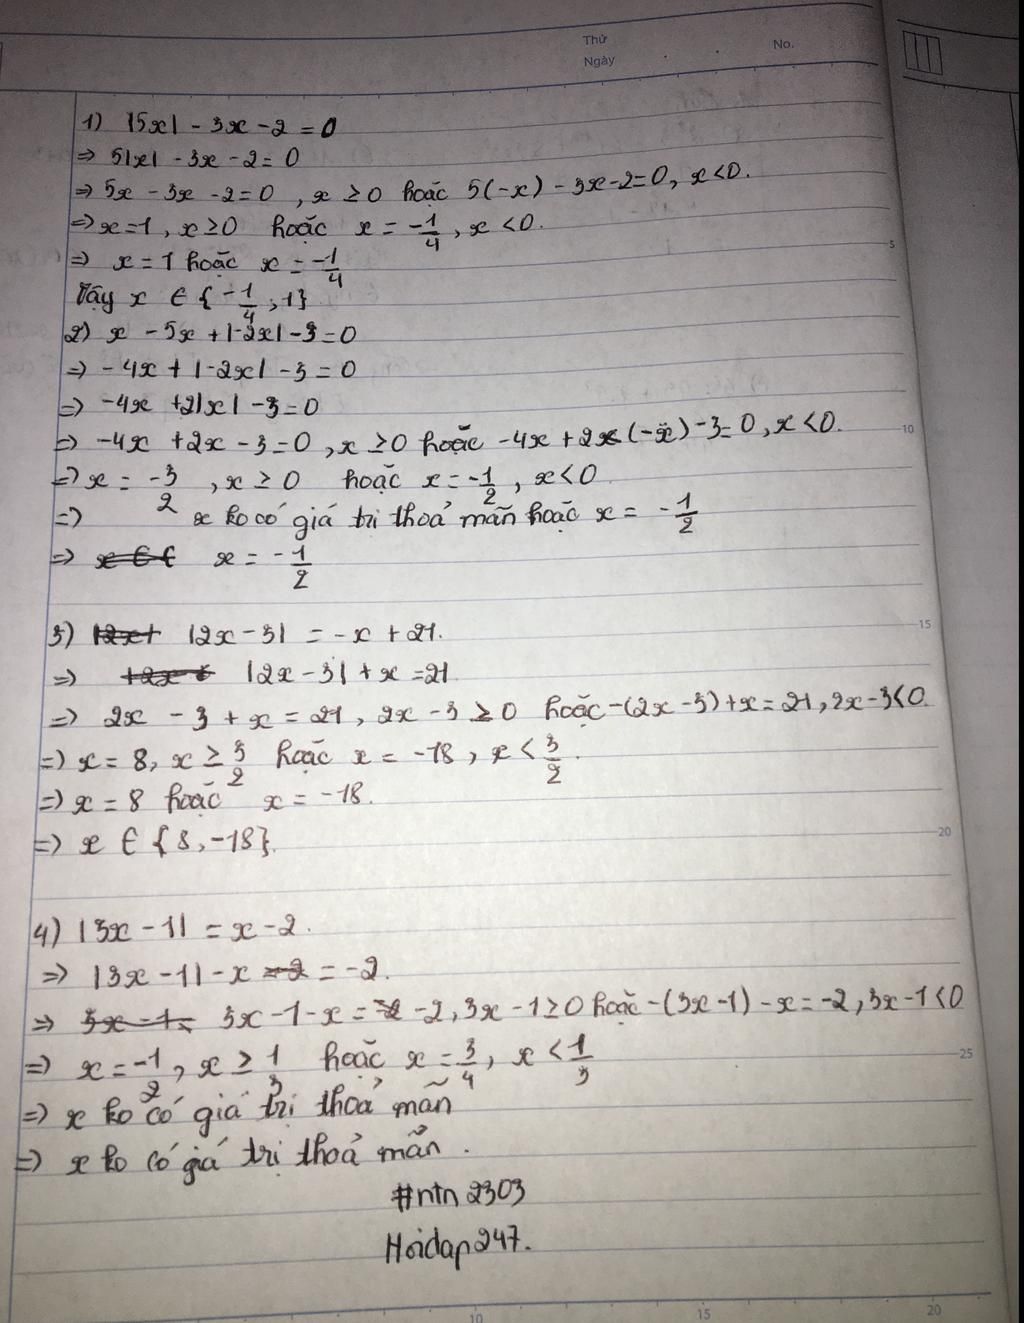 Thứ
No.
Ngày
1) |5x| - 3x - 2 = 0
=> 5|x| - 3x - 2 = 0
=> 5x - 3x - 2 = 0 , x ≥ 0 hoặc 5(-x) - 3x - 2 = 0, x < 0.
=> x = 1 , x ≥ 0 hoặc x = -1/4 , x < 0.
=> x = 1 hoặc x = -1/4
Vậy x ∈ {-1/4 , 1}
2) x - 5x + |-2x| - 3 = 0
=> -4x + |-2x| - 3 = 0
=> -4x + 2|x| - 3 = 0
=> -4x + 2x - 3 = 0 , x ≥ 0 hoặc -4x + 2(-x) - 3 = 0 , x < 0.
=> x = -3/2 , x ≥ 0 hoặc x = -1/2 , x < 0
=> x ko có giá trị thoả mãn hoặc x = -1/2
=> x = -1/2
3) |2x - 3| = -x + 21.
=> |2x - 3| + x = 21
=> 2x - 3 + x = 21 , 2x - 3 ≥ 0 hoặc -(2x - 3) + x = 21 , 2x - 3 < 0.
=> x = 8, x ≥ 3/2 hoặc x = -18 , x < 3/2 .
=> x = 8 hoặc x = -18.
=> x ∈ {8, -18}.
4) |3x - 1| = x - 2.
=> |3x - 1| - x = -2.
=> 3x - 1 - x = -2 , 3x - 1 ≥ 0 hoặc -(3x - 1) - x = -2 , 3x - 1 < 0
=> x = -1/2 , x ≥ 1/3 hoặc x = 3/4 , x < 1/3
=> x ko có giá trị thoả mãn
=> x ko có giá trị thoả mãn .
#ntn2303
Hoidap247.
5
10
15
20
25
10
15
20